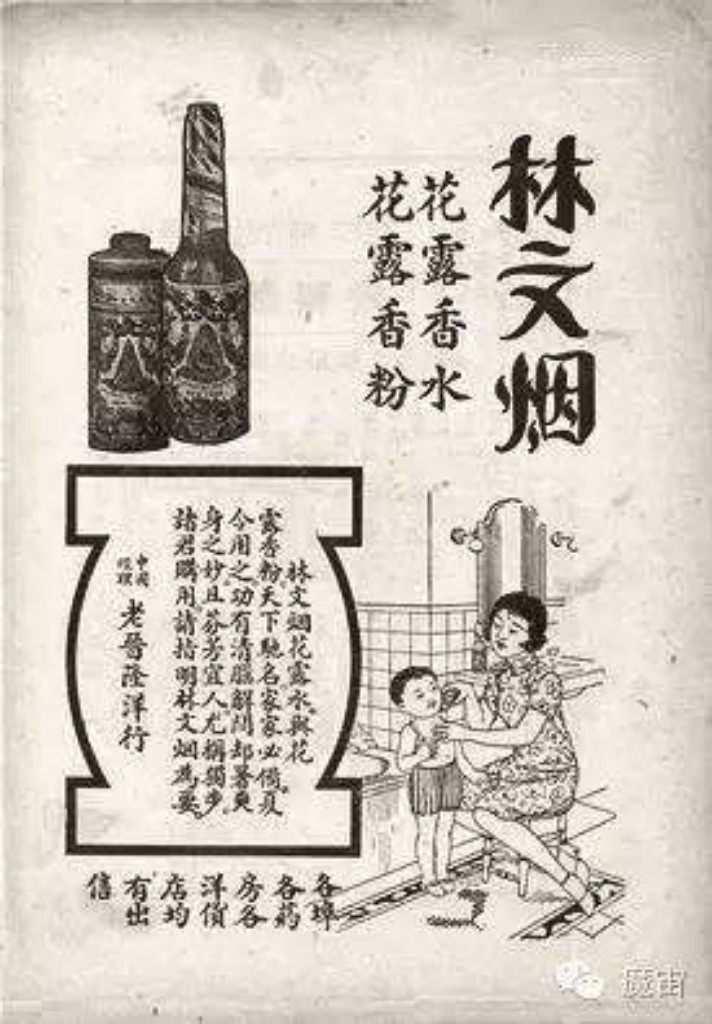 林文烟
花露香水
花露香粉
林文烟花露水與花
露香粉天下馳名家家必備。夏
令用之功有清腦解悶却暑爽
身之妙且芬芳宜人尤稱獨步。
諸君購用請指明林文烟為要
中國
經理
老晉隆洋行
各埠
各葯
房各
洋貨
店均
有出
售
魔宙